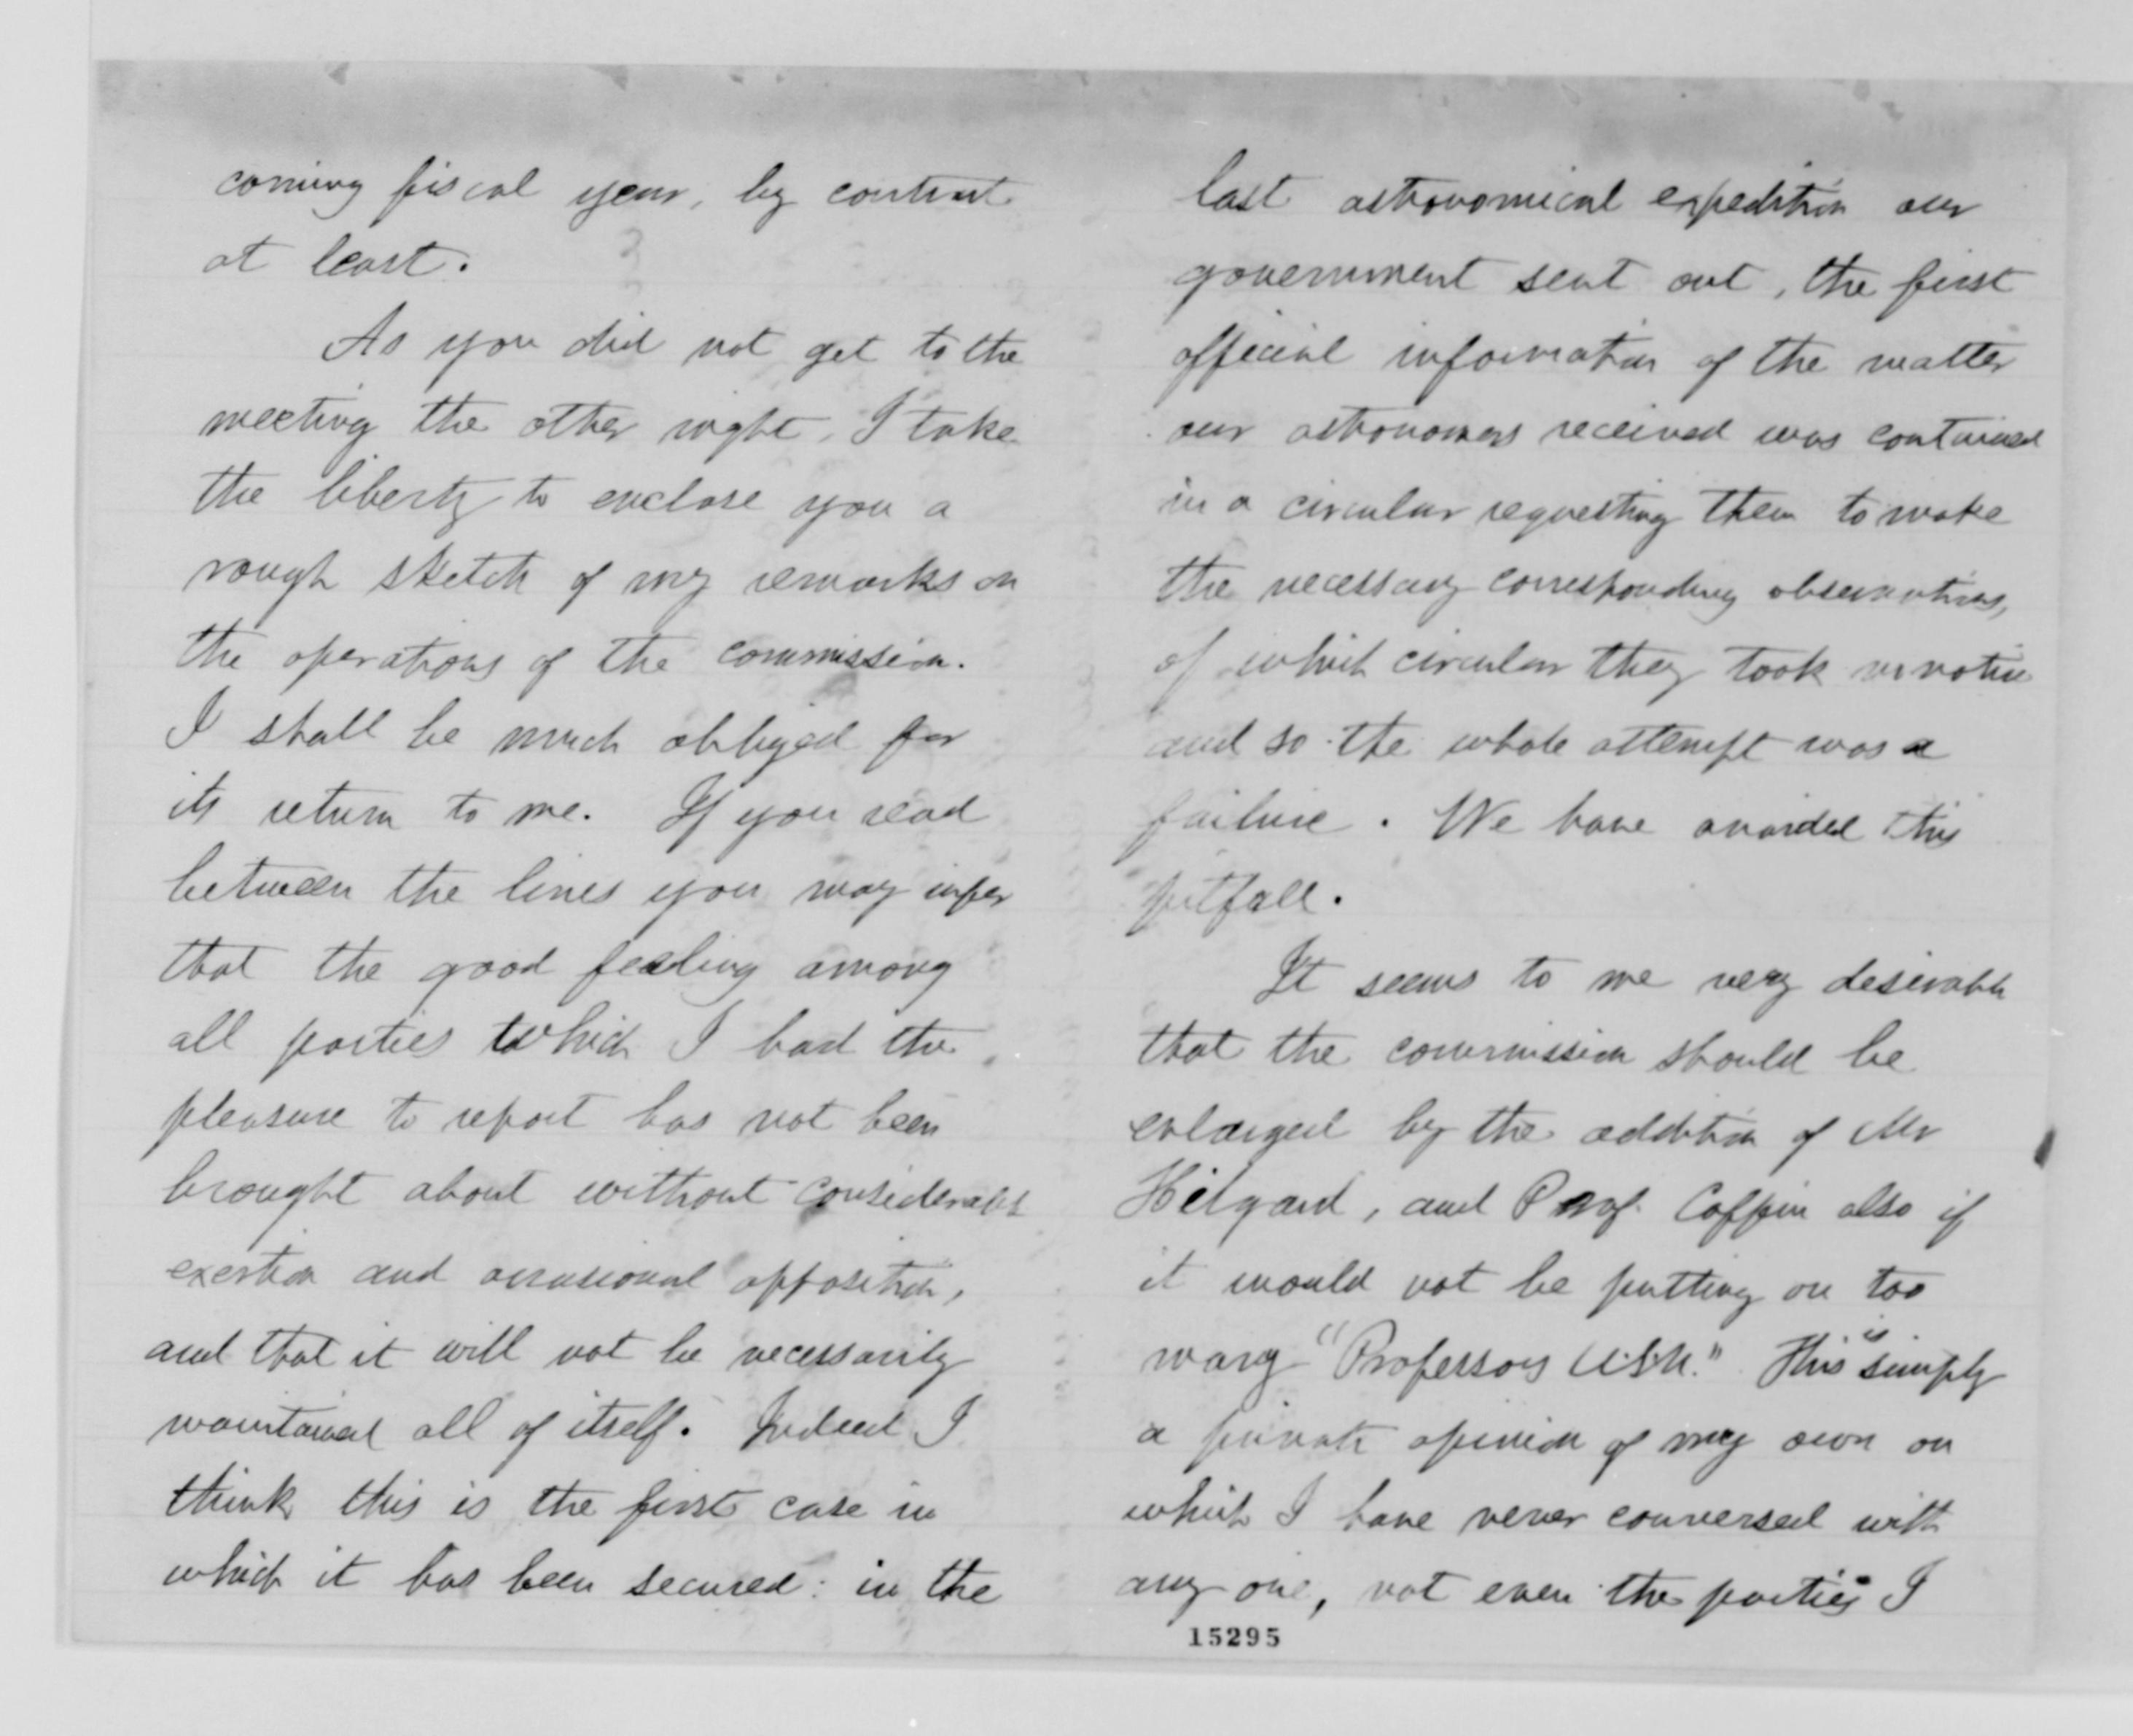 coming fiscal year, by contract
at least.
As you did not get to the
meeting the other night, I take
the liberty to enclose you a
rough sketch of my remarks on
the operations of the commission.
I shall be much obliged for
its return to me. If you read
between the lines you may infer
that the good feeling among
all parties which I had the
pleasure to report has not been
brought about without considerable
exertion and occasional opposition,
and that it will not be necessarily
maintained all of itself. Indeed I
think this is the first case in
which it has been secured: in the
last astronomical expedition our
government sent out, the first
official information of the matter
our astronomers received was contained
in a circular requesting them to make
the necessary corresponding observations,
of which circular they took no notice
and so the whole attempt was a
failure. We have avoided this
pitfall.
It seems to me very desirable
that the commission should be
enlarged by the addition of Mr
Hilgard, and Prof. Coffin also if
it would not be putting on too
many "Professors U.S.N." This is simply
a private opinion of my own on
which I have never conversed with
any one, not even the parties I
15295